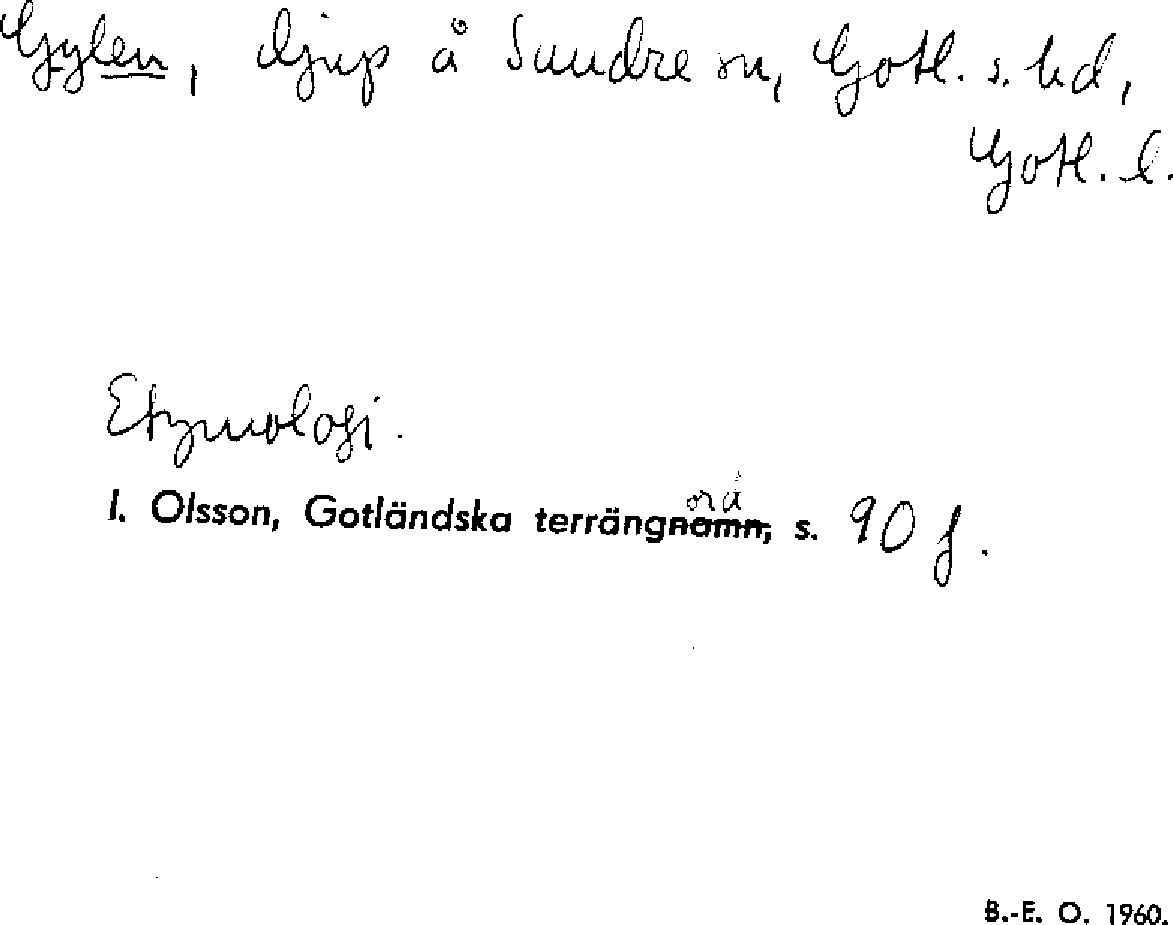 Gylen, djup å Sundre sn, Gotl. s. hd,
Gotl. l.
Etymologi.
I. Olsson, Gotländska terrängord s. 90 f.
B.-E. O. 1960.